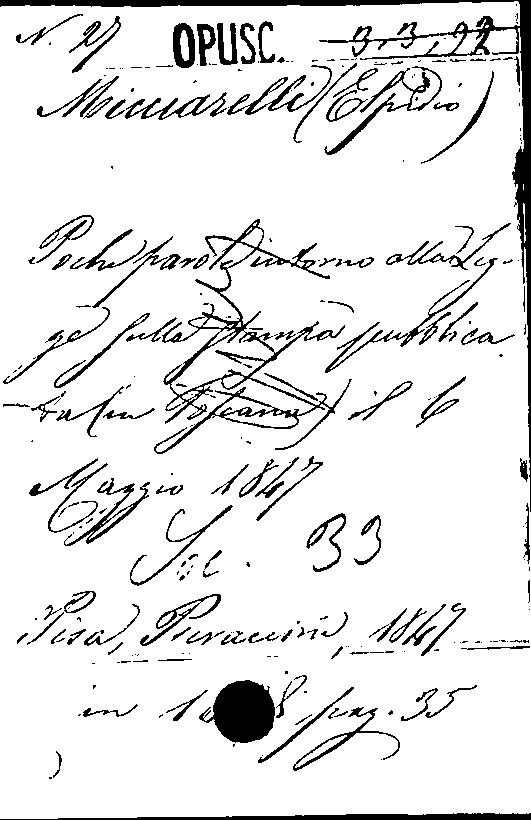 N. 27 OPUSC. 3,3,92
Micciarelli (Elpidio)
Poche parole intorno alla Leg-
ge sulla stampa pubblica
ta (in Toscana) il 6
Maggio 1847
Soc. 33
Pisa, Pieraccini, 1847
in 1 8 pag. 35